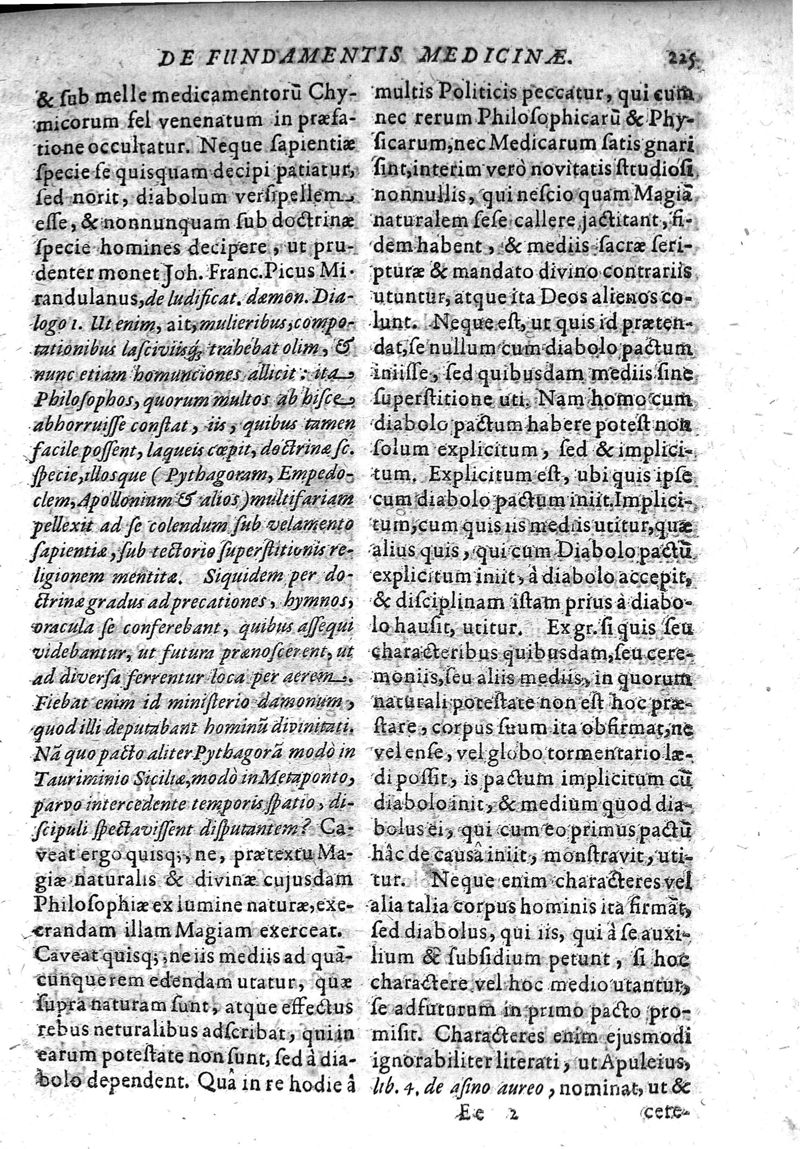 DE FUNDAMENTIS MEDICINÆ. 225
& ſub melle medicamentorũ Chy-
micorum fel venenatum in præfa-
tione occultatur. Neque ſapientiæ
ſpecie ſe quisquam decipi patiatur,
ſed norit, diabolum verſipellem
eſſe, & nonnunquam ſub doctrinæ
ſpecie homines decipere, ut pru-
denter monet Joh. Franc. Picus Mi-
randulanus, de ludificat. dæmon. Dia-
logo 1. Ut enim, ait, mulieribus, compo-
tationibus laſciviisq́, trahebat olim, &
nunc etiam homunciones allicit: ita
Philoſophos, quorum multos ab hiſce
abhorruiſſe conſtat, iis, quibus tamen
facile poſſent, laqueis cœpit, doctrinæ ſc.
ſpecie, illosque (Pythagoram, Empedo-
clem, Apollonium & alios) multifariam
pellexit ad ſe colendum ſub velamento
ſapientiæ, ſub tectorio ſuperſtitionis re-
ligionem mentitæ. Siquidem per do-
ctrinæ gradus ad precationes, hymnos,
oracula ſe conferebant, quibus aſſequi
videbantur, ut futura prænoſcerent, ut
ad diverſa ferrentur loca per aerem.
Fiebat enim id miniſterio dæmonum,
quod illi deputabant hominũ divinitati.
Nã quo pacto aliter Pythagorã modò in
Tauriminio Siciliæ, modò in Metaponto,
parvo intercedente temporis ſpatio, di-
ſcipuli ſpectaviſſent diſputantem? Ca-
veat ergo quisq;, ne, prætextu Ma-
giæ naturalis & divinæ cujusdam
Philoſophiæ ex lumine naturæ, exe-
crandam illam Magiam exerceat.
Caveat quisq;, ne iis mediis ad quã-
cunque rem edendam utatur, quæ
ſupra naturam ſunt, atque effectus
rebus neturalibus adſcribat, qui in
earum poteſtate non ſunt, ſed â dia-
bolo dependent. Quâ in re hodie â
multis Politicis peccatur, qui cum
nec rerum Philoſophicarũ & Phy-
ſicarum, nec Medicarum ſatis gnari
ſint, interim verò novitatis ſtudioſi
nonnullis, qui neſcio quam Magiã
naturalem ſeſe callere jactitant, fi-
dem habent, & mediis ſacræ ſcri-
pturæ & mandato divino contrariis
utuntur, atque ita Deos alienos co-
lunt. Neque eſt, ut quis id præten-
dat, ſe nullum cum diabolo pactum
iniiſſe, ſed quibusdam mediis ſine
ſuperſtitione uti. Nam homo cum
diabolo pactum habere poteſt non
ſolum explicitum, ſed & implici-
tum. Explicitum eſt, ubi quis ipſe
cum diabolo pactum iniit. Implici-
tum, cum quis iis mediis utitur, quæ
alius quis, qui cum Diabolo pactũ
explicitum iniit, â diabolo accepit,
& diſciplinam iſtam prius â diabo-
lo hauſit, utitur. Ex gr. ſi quis ſeu
characteribus quibusdam, ſeu cere-
moniis, ſeu aliis mediis, in quorum
naturali poteſtate non eſt hoc præ-
ſtare, corpus ſuum ita obfirmat, ne
vel enſe, vel globo tormentario læ-
di poſſit, is pactum implicitum cũ
diabolo init, & medium quod dia-
bolus ei, qui cum eo primus pactũ
hâc de causâ iniit, monſtravit, uti-
tur. Neque enim characteres vel
alia talia corpus hominis ita firmãt,
ſed diabolus, qui iis, qui â ſe auxi-
lium & ſubſidium petunt, ſi hoc
charactere vel hoc medio utantur,
ſe adfuturum in primo pacto pro-
miſit. Characteres enim ejusmodi
ignorabiliter literati, ut Apuleius,
lib. 4. de aſino aureo, nominat, ut &
Ee 2 cere-